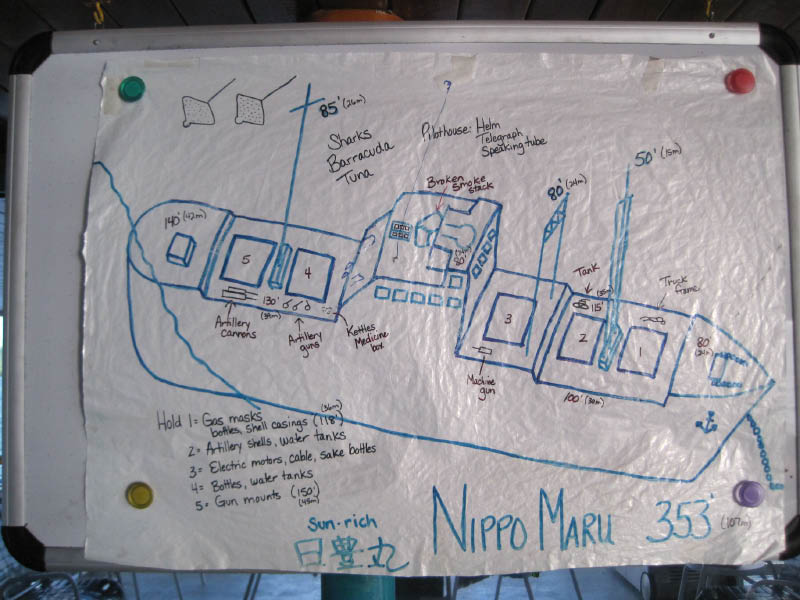 85' (26m)
Sharks
Barracuda
Tuna
Pilothouse: Helm
Telegraph
Speaking tube
Broken
Smoke
stack
50' (15m)
80' (24m)
140' (42m)
5
4
130'
(39m)
Artillery
cannons
Artillery
guns
Kettles
Medicine
box
80'
(24m)
3
Machine
gun
Tank
115'
(35m)
Truck
frame
2
1
80'
(24m)
100' (30m)
Hold 1= Gas masks
bottles, shell casings (118') (36m)
2= Artillery shells, water tanks
3= Electric motors, cable, sake bottles
4= Bottles, water tanks
5= Gun mounts (150')
Sun-rich
日豊丸
NIPPO MARU 353' (107m)